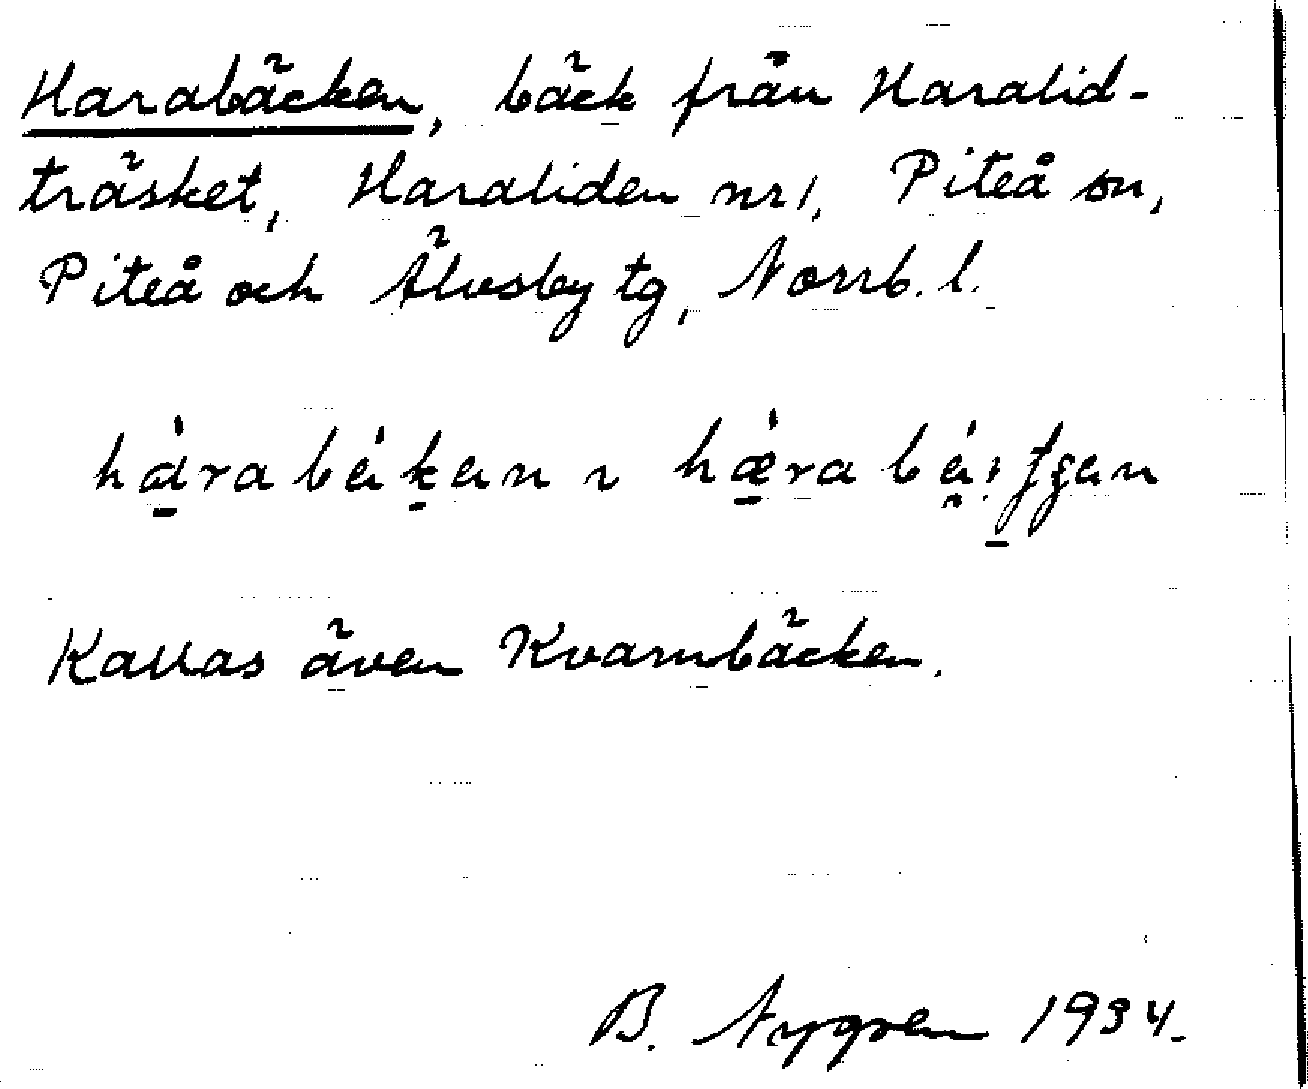 Harabäcken, bäck från Haralid-
träsket, Haraliden nr 1, Piteå sn,
Piteå och Älvsby tg, Norrb. l.
Kallas även Kvarnbäcken.
B. Nygren 1934.